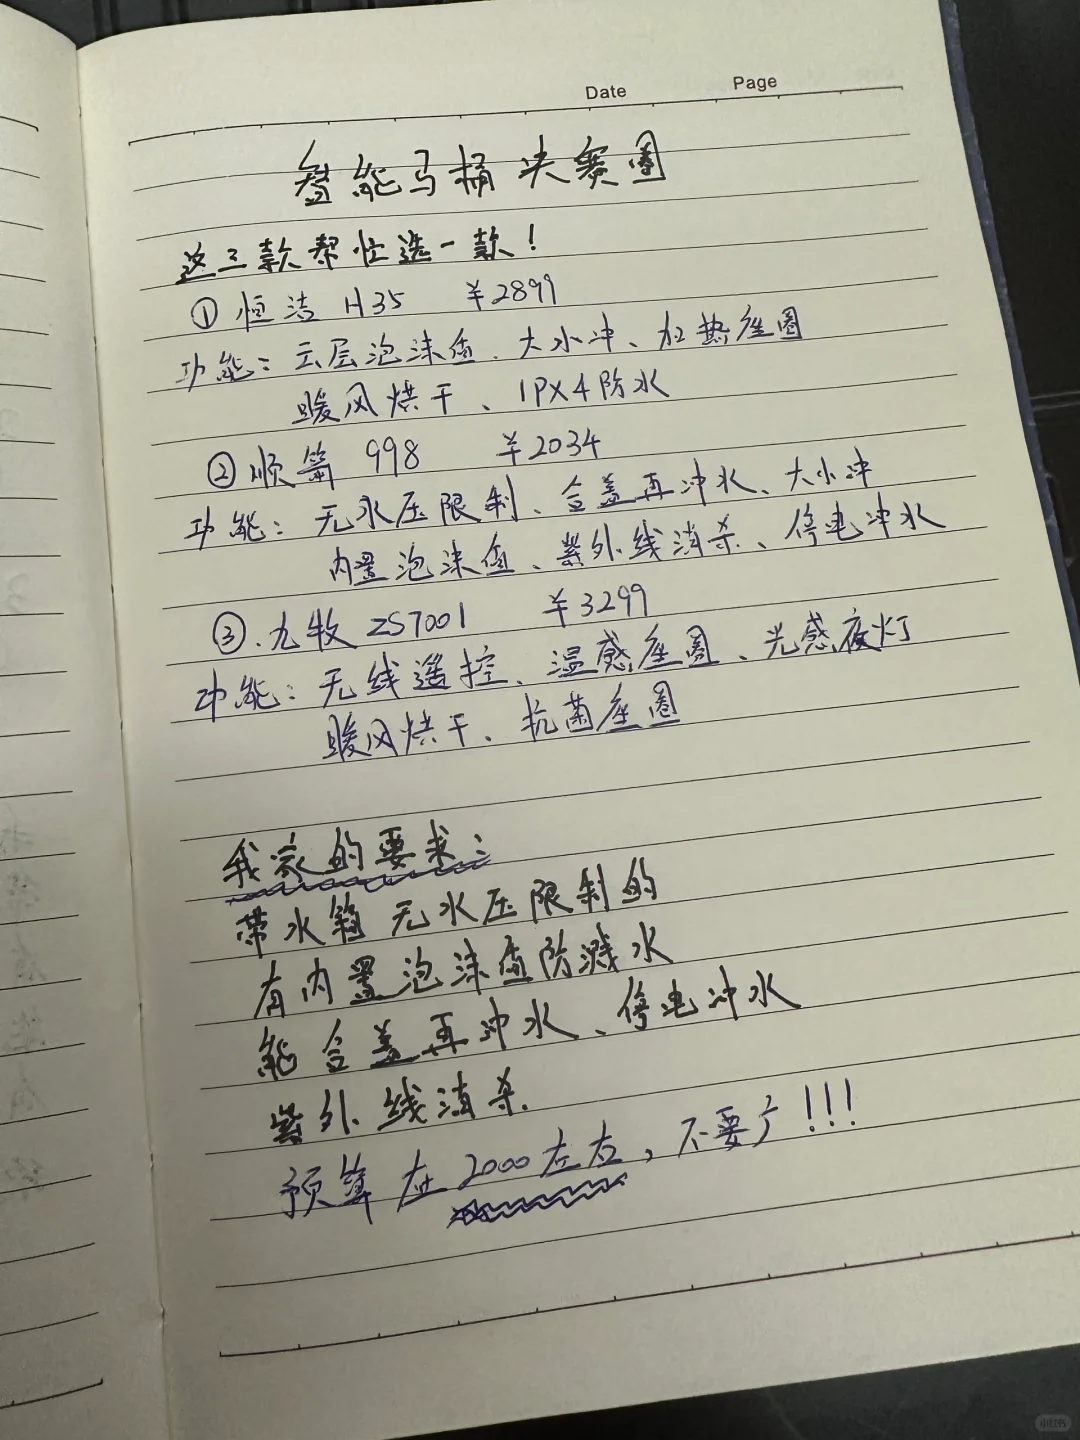 Date Page
智能马桶决赛圈
这三款帮忙选一款！
① 恒洁 H35 ¥2899
功能：云层泡沫盾、大水冲、加热座圈
暖风烘干、IPX4防水
② 顺箭 998 ¥2034
功能：无水压限制、合盖再冲水、大小冲
内置泡沫盾、紫外线消杀、停电冲水
③.九牧 ZS7001 ¥3299
功能：无线遥控、温感座圈、光感夜灯
暖风烘干、抗菌座圈
我家的要求：
带水箱 无水压限制的
有内置泡沫盾防溅水
能合盖再冲水、停电冲水
紫外线消杀.
预算在2000左右，不要广!!!
小红书